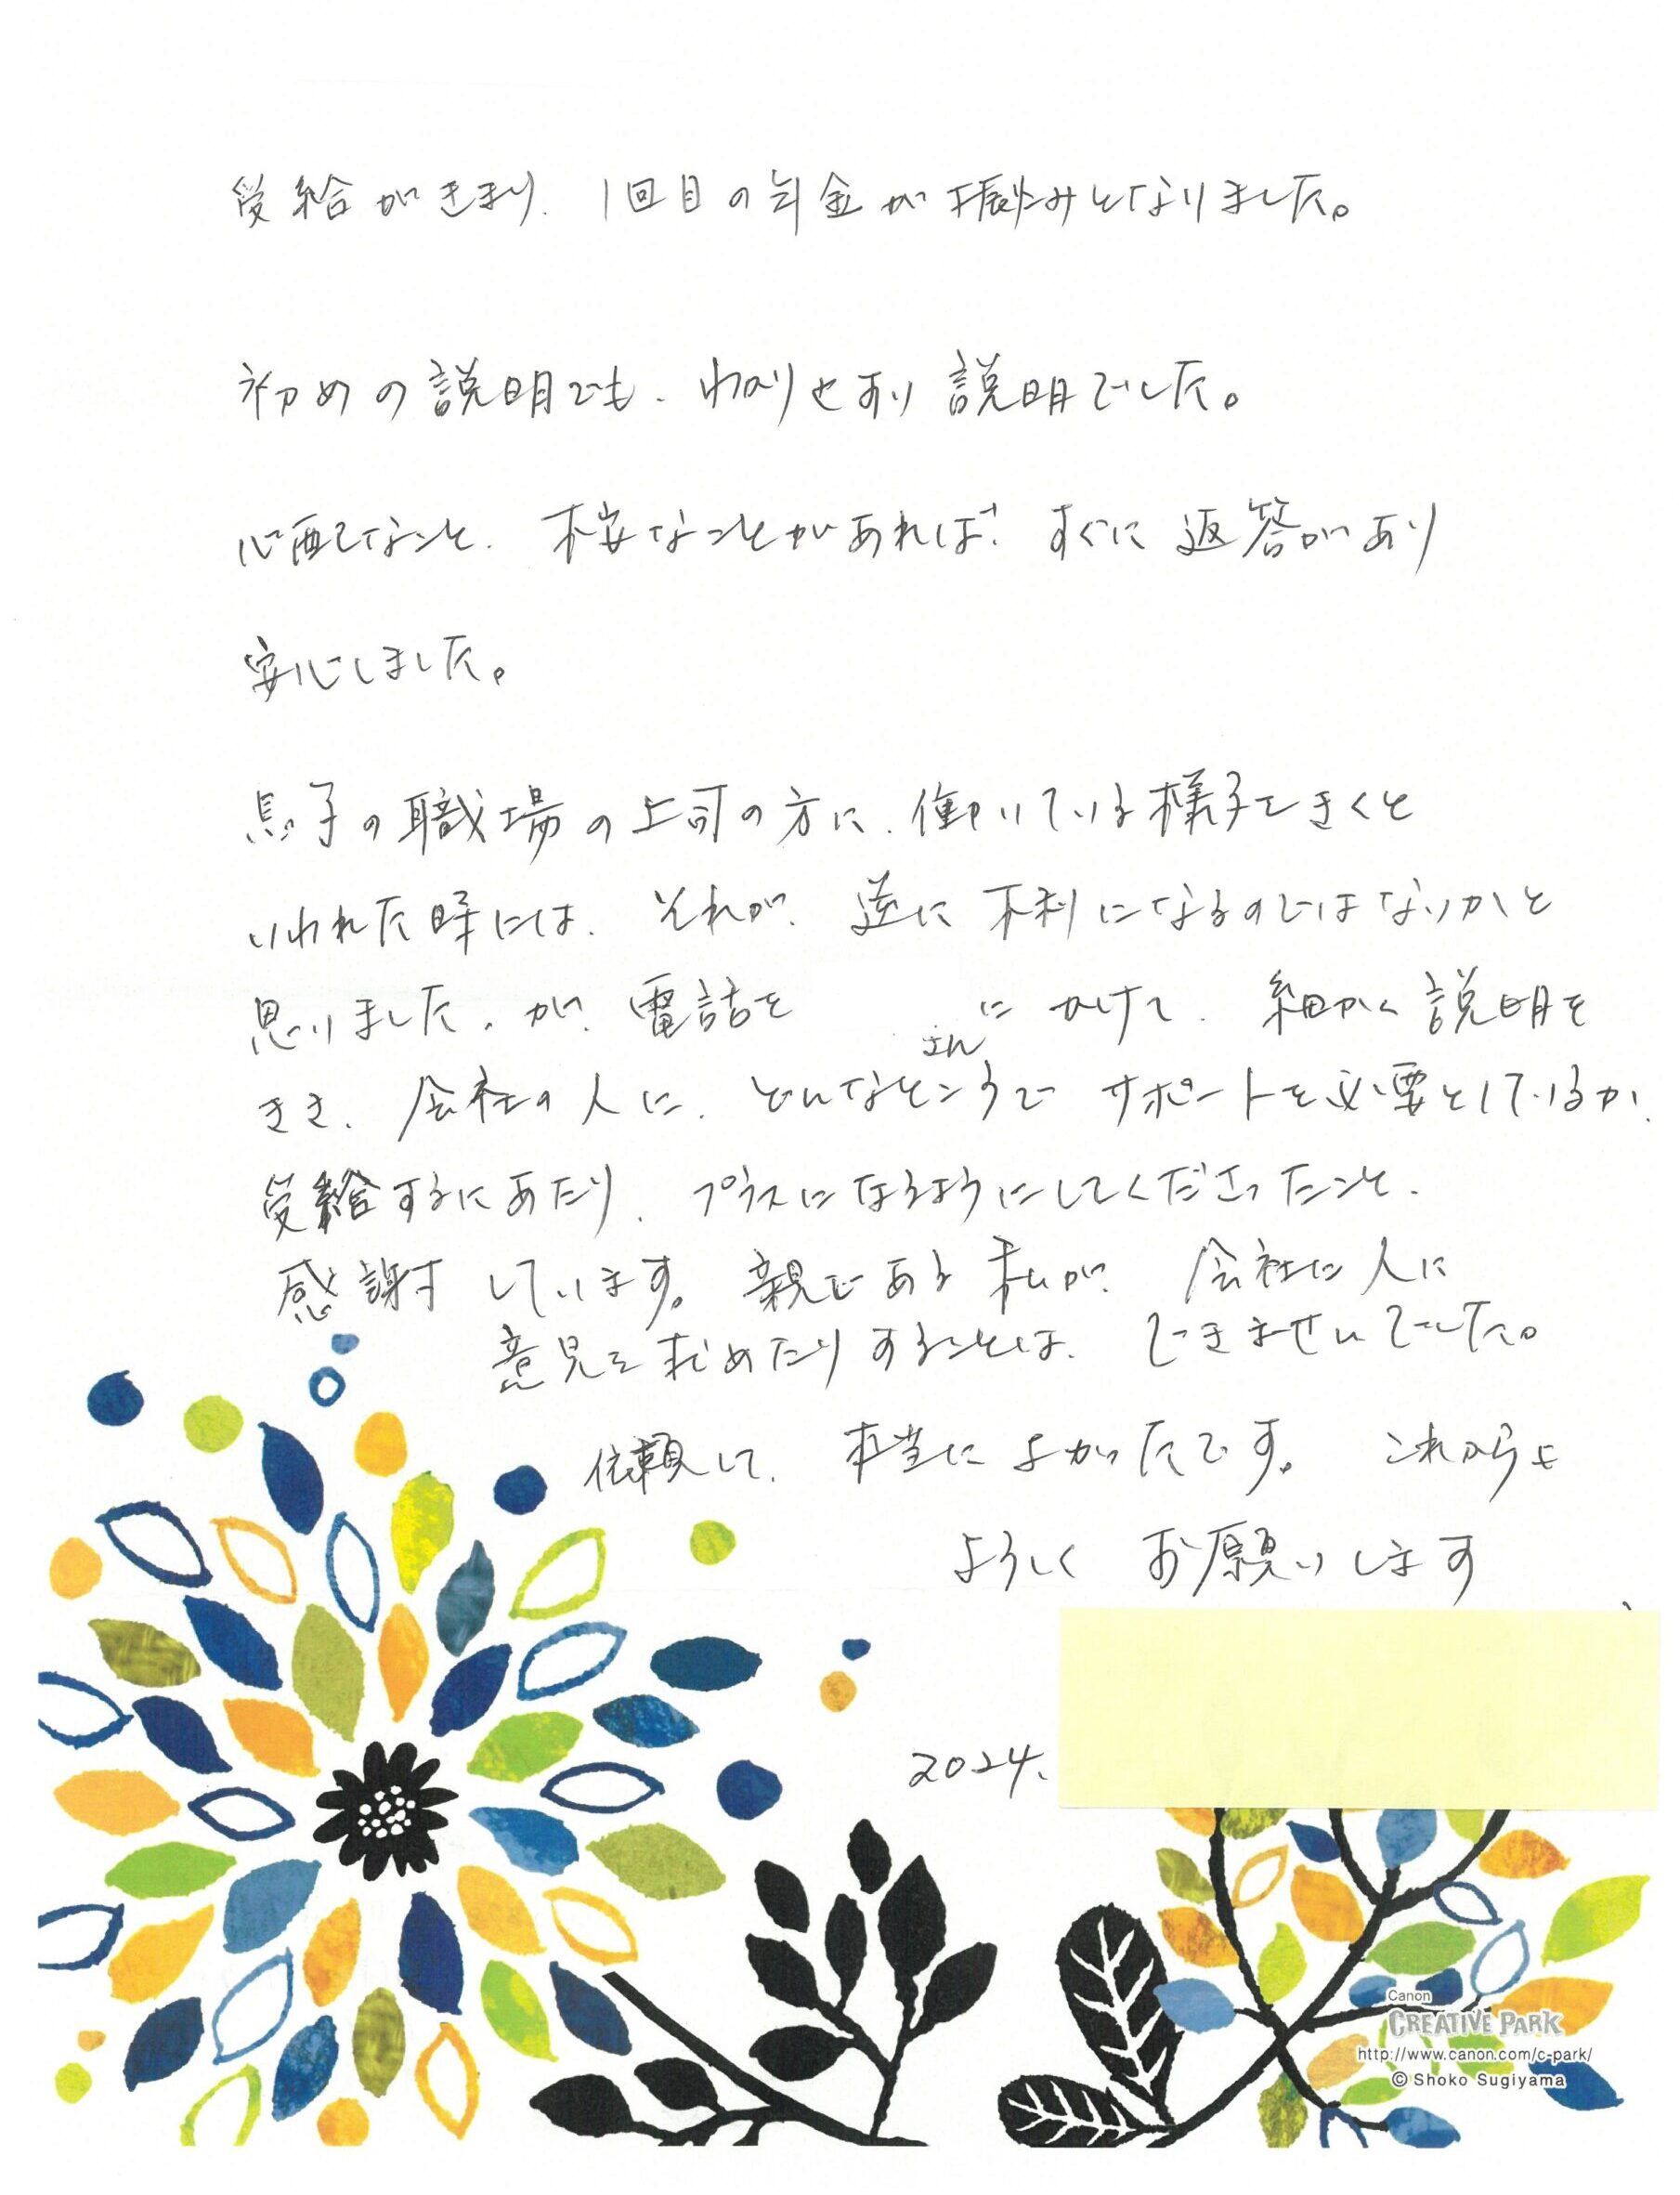 受給がきまり、1回目の年金が振込みとなりました。
初めの説明でも、わかりやすい説明でした。
心配なこと、不安なことがあれば、すぐに返答があり
安心しました。
息子の職場の上司の方に、働いている様子をきくと
いわれた時には、それが、逆に不利になるのではないかと
思いました。が、電話を
さん
に かけて、細かく説明を
きき、会社の人に、どんなところで サポートを必要としているか、
受給するにあたり、プラスになるようにしてくださったこと、
感謝しています。親である私が、会社に人に
意見を求めたりすることは、できませんでした。
依頼して、本当によかったです。これからも
よろしく お願いします
2024.
Canon
CREATIVE PARK
http://www.canon.com/c-park/
© Shoko Sugiyama